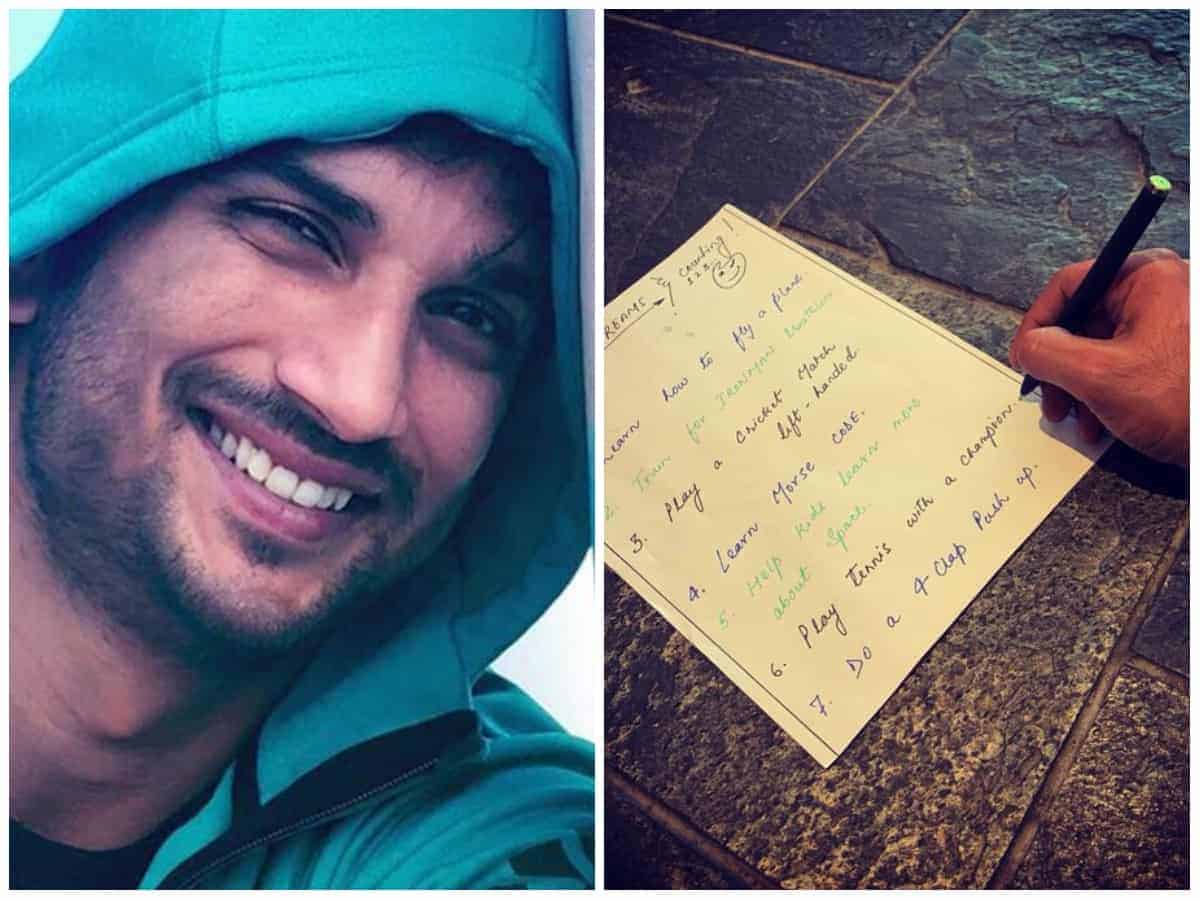 REAMS & counting!
1 2 3...
Learn how to fly a plane.
2. Train for IRONMAN triathlon
3. Play a cricket Match
left-handed.
4. Learn Morse code.
5. Help kids learn more
about Space.
6. Play Tennis with a Champion.
7. Do a 4 Clap Push up.